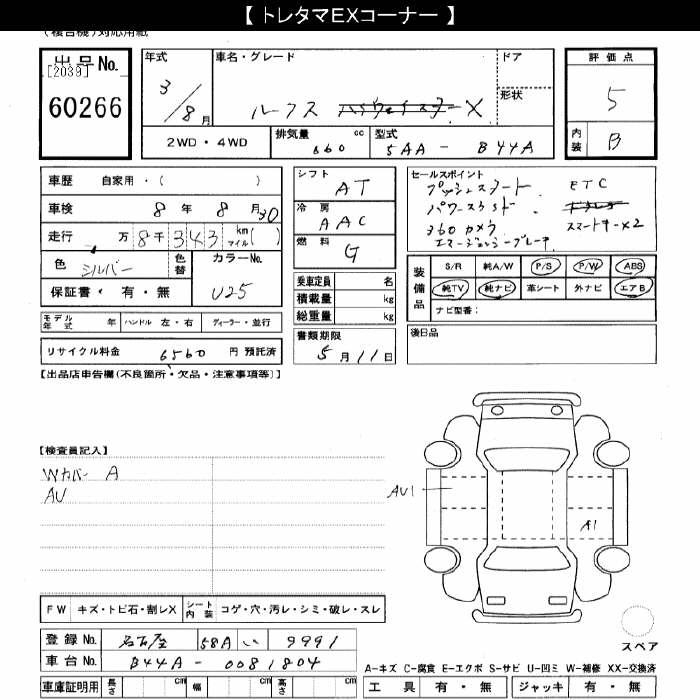 【 トレタマEXコーナー 】
(複合機)対応用紙
出品No.
[2039]
60266
年式
3/8月
車名・グレード
ルークス ハイウェイスター X
ドア
形状
評価点
5
内装 B
2WD・4WD
排気量 cc
660
型式
5AA - B44A
車歴 自家用・( )
車検 8年 8月30
走行 万8千343 km マイル( )
色 シルバー
色替
カラーNo.
U25
保証書・有・無
シフト
AT
冷房
AAC
燃料
G
乗車定員 名
積載量 kg
総重量 kg
セールスポイント
プッシュスタート
ETC
パワースライド
360カメラ
スマートキー×2
エマージェンシーブレーキ
装備品
S/R 純A/W P/S P/W ABS
純TV 純ナビ 革シート 外ナビ エアB
ナビ型番:
モデル年式 年 ハンドル 左・右 ディーラー・並行
リサイクル料金 6560 円 預託済
書類期限
5月11日
後日品
【出品店申告欄(不良箇所・欠品・注意事項等)】
【検査員記入】
Wカバー A
AU
AU1
A1
FW キズ・トビ石・割レX
シート内装 コゲ・穴・汚レ・シミ・破レ・スレ
登録No. 名古屋 58A い 9991
車台No. B44A - 0081804
車庫証明用 長さ cm 幅 cm 高さ cm
スペア
A-キズ C-腐食 E-エクボ S-サビ U-凹ミ W-補修 XX-交換済
工具 有・無 ジャッキ 有・無